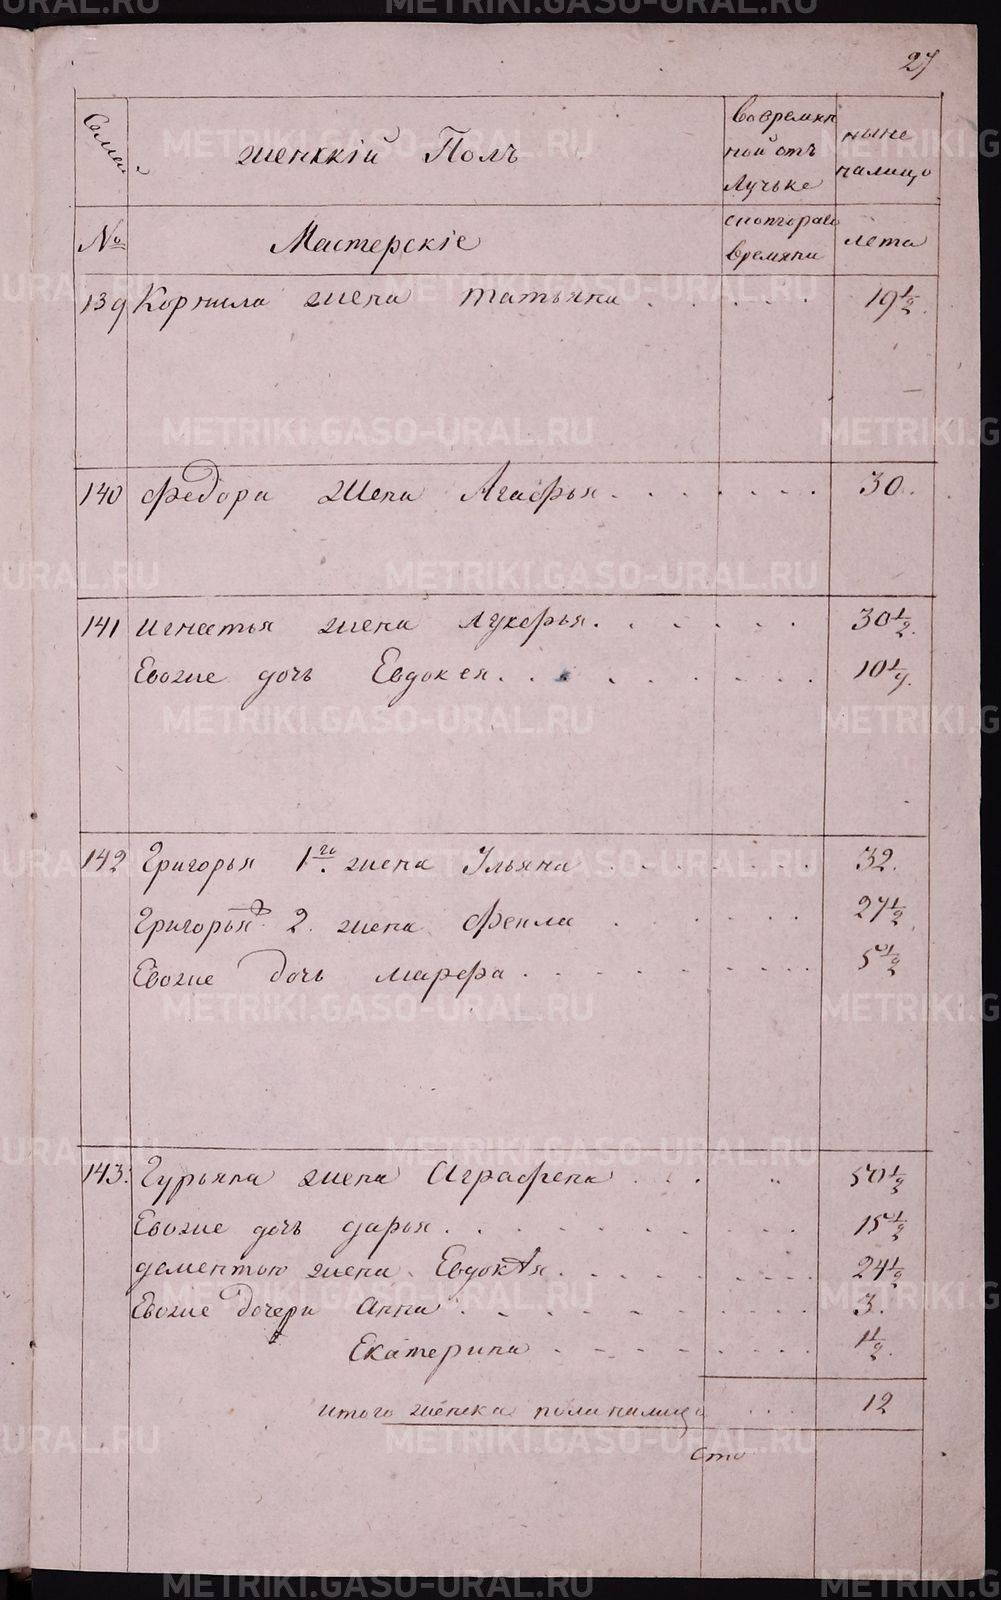 27
Семей
женккій Полъ
Вовремян
ной отъ
Лучьке
ныне
налицо
№
Мастерскіе
скоптораго
времяни
лета
139 Корнила жена татьяна 19 1/2.
140 Федора жена Агафья 30.
141 Игнатья жена Лукерья 30 1/2.
Евоже дочь Евдокея 10 1/2.
142 Григорья 1го жена Ульяна 32.
Григорья 2. жена Фекла 27 1/2
Евоже дочь марфа 5 1/2
143. Гурьяна жена Аграфена 50 1/2
Евоже дочь дарья 15 1/2
дементью жена Евдокея 24 1/2
Евоже дочери Анна 3.
Екатерина 1 1/2.
итого женска пола налицо 12
сто
METRIKI.GASO-URAL.RU